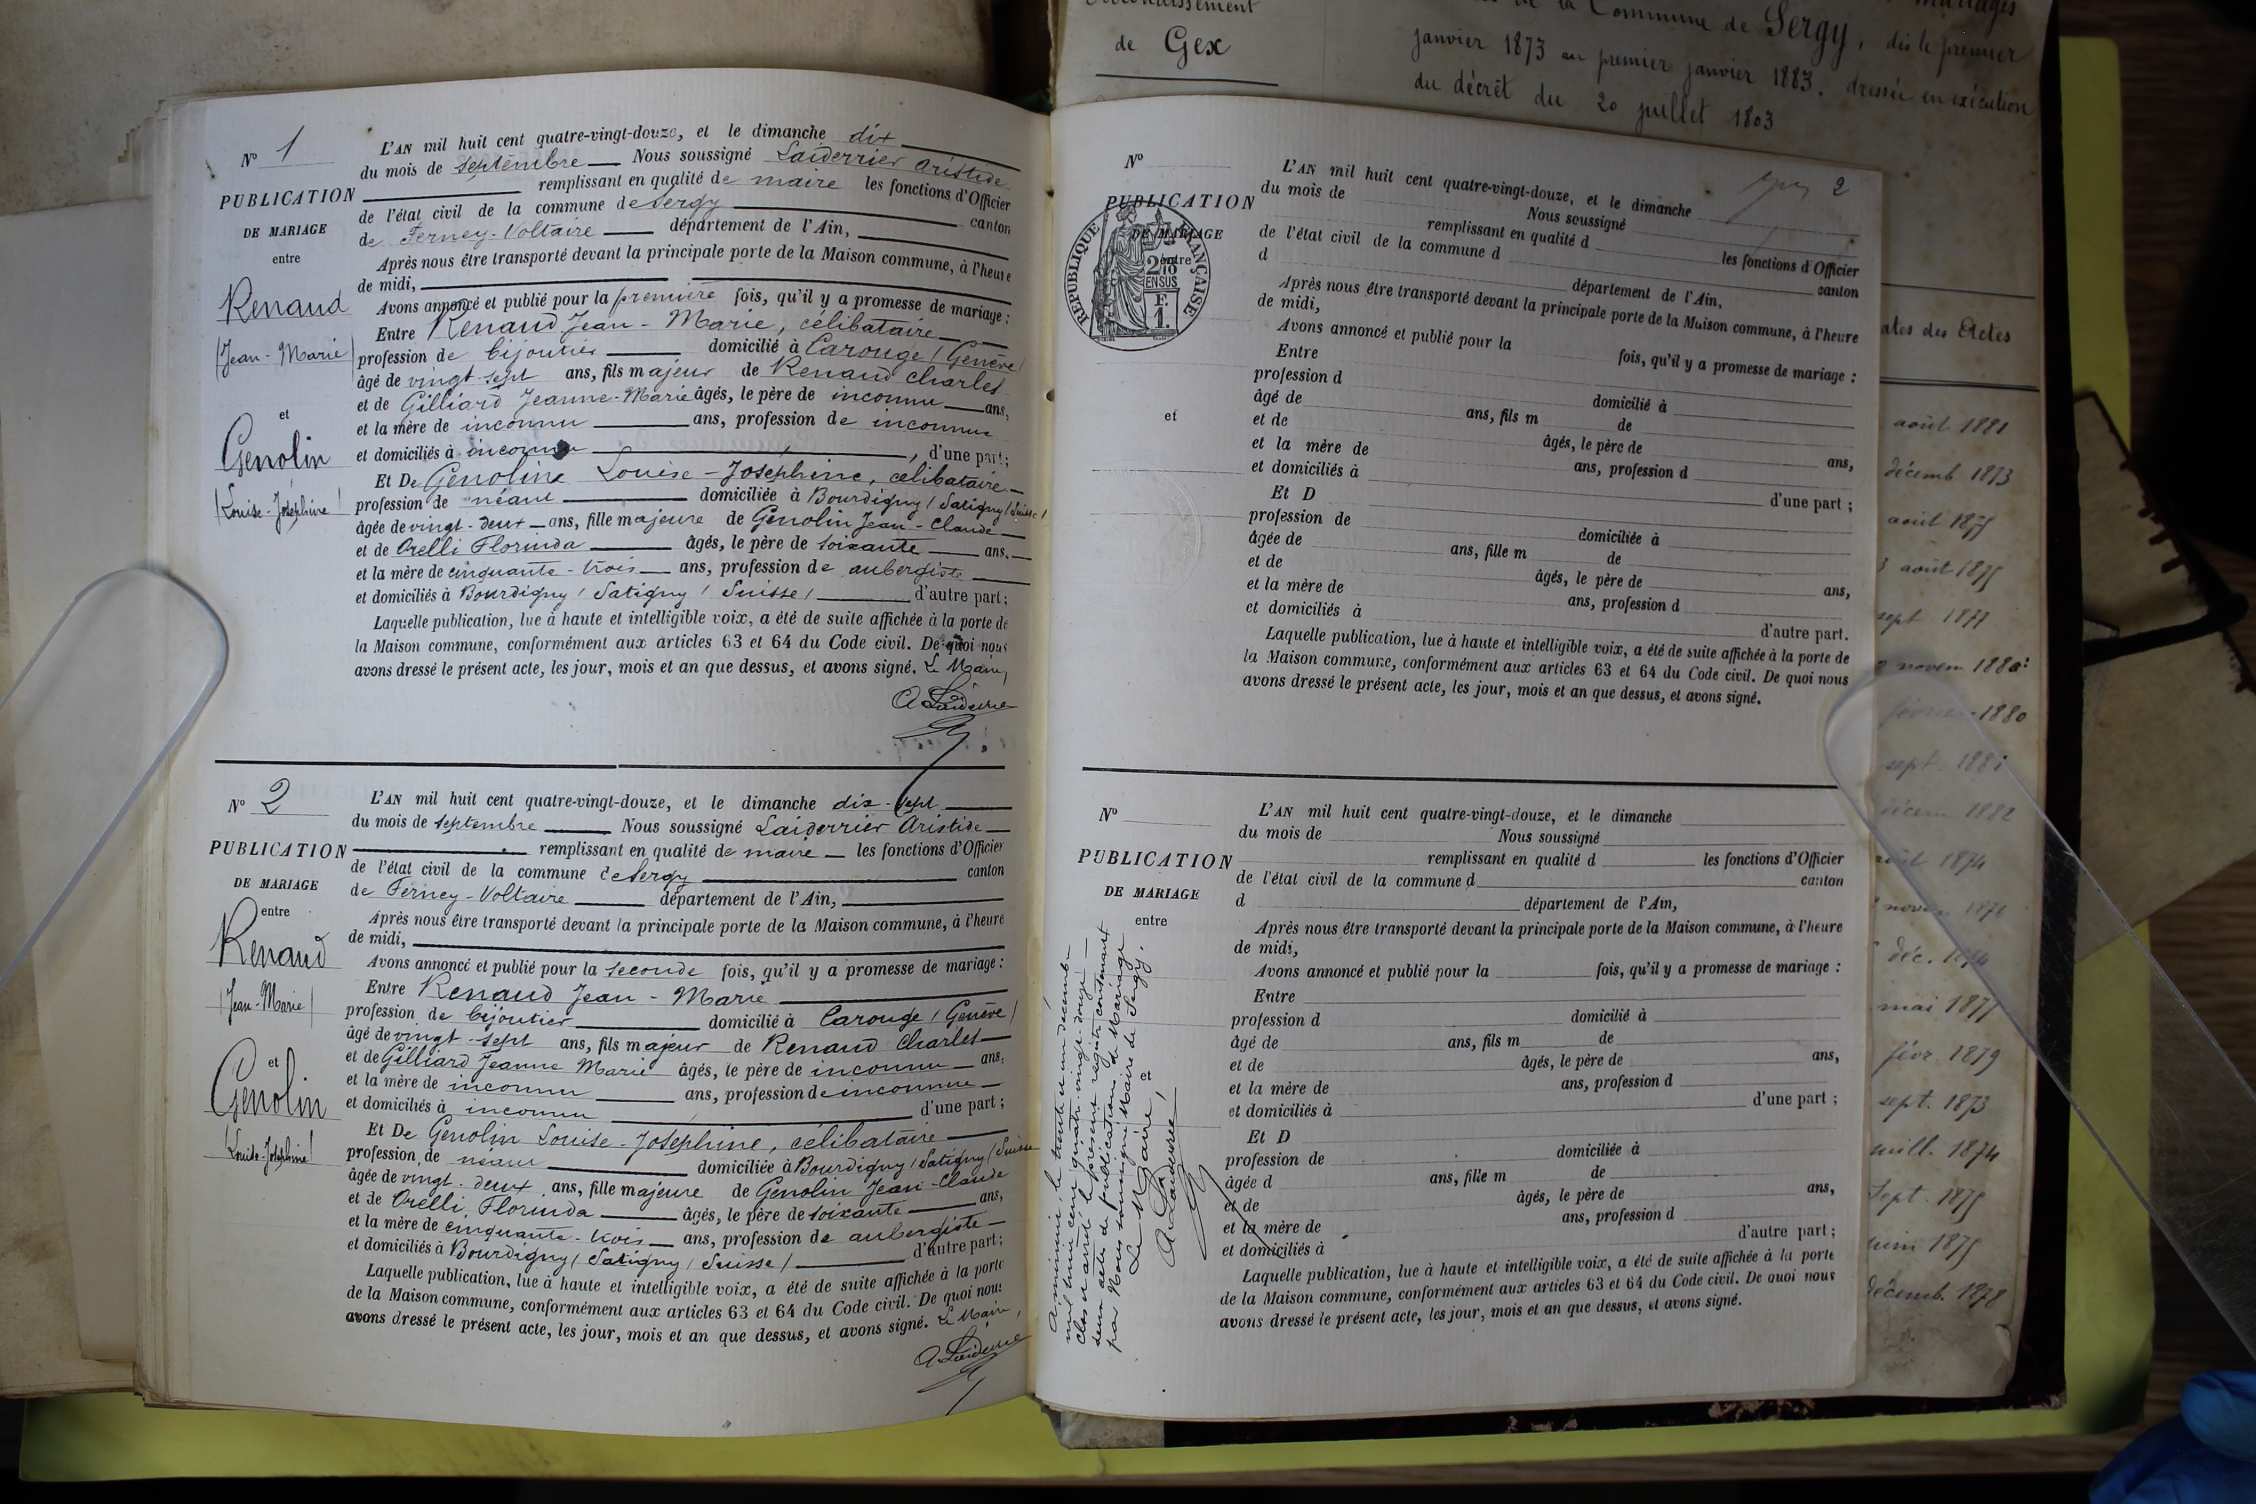 N° 1
PUBLICATION
DE MARIAGE
entre
Renaud
(Jean-Marie)
et
Genolin
(Louise-Joséphine)
L'AN mil huit cent quatre-vingt-douze, et le dimanche dix
du mois de septembre Nous soussigné Laiderrier Aristide
remplissant en qualité de maire les fonctions d'Officier
de l'état civil de la commune de Sergy canton
de Ferney-Voltaire département de l'Ain,
Après nous être transporté devant la principale porte de la Maison commune, à l'heure
de midi,
Avons annoncé et publié pour la première fois, qu'il y a promesse de mariage :
Entre Renaud Jean-Marie, célibataire
profession de bijoutier domicilié à Carouge (Genève)
âgé de vingt-sept ans, fils majeur de Renaud Charles
et de Gilliard Jeanne-Marie âgés, le père de inconnu ans,
et la mère de inconnu ans, profession de inconnue
et domiciliés à inconnu, d'une part ;
Et De Genoline Louise-Joséphine, célibataire
profession de néant domiciliée à Bourdigny (Satigny (Suisse)
âgée de vingt-deux ans, fille majeure de Genolin Jean-Claude
et de Orelli Florinda âgés, le père de soixante ans,
et la mère de cinquante-trois ans, profession de aubergiste
et domiciliés à Bourdigny (Satigny (Suisse) d'autre part ;
Laquelle publication, lue à haute et intelligible voix, a été de suite affichée à la porte de
la Maison commune, conformément aux articles 63 et 64 du Code civil. De quoi nous
avons dressé le présent acte, les jour, mois et an que dessus, et avons signé. Le Maire,
A Laiderrier
N° 2
PUBLICATION
DE MARIAGE
entre
Renaud
(Jean-Marie)
et
Genolin
(Louise-Joséphine)
L'AN mil huit cent quatre-vingt-douze, et le dimanche dix-sept
du mois de septembre Nous soussigné Laiderrier Aristide
remplissant en qualité de maire les fonctions d'Officier
de l'état civil de la commune de Sergy canton
de Ferney-Voltaire département de l'Ain,
Après nous être transporté devant la principale porte de la Maison commune, à l'heure
de midi,
Avons annoncé et publié pour la seconde fois, qu'il y a promesse de mariage :
Entre Renaud Jean-Marie
profession de bijoutier domicilié à Carouge (Genève)
âgé de vingt-sept ans, fils majeur de Renaud Charles
et de Gilliard Jeanne Marie âgés, le père de inconnu ans,
et la mère de inconnu ans, profession de inconnue
et domiciliés à inconnu d'une part ;
Et De Genolin Louise-Joséphine, célibataire
profession de néant domiciliée à Bourdigny (Satigny (Suisse
âgée de vingt-deux ans, fille majeure de Genolin Jean-Claude
et de Orelli Florinda âgés, le père de soixante ans,
et la mère de cinquante-trois ans, profession de aubergiste
et domiciliés à Bourdigny (Satigny (Suisse) d'autre part ;
Laquelle publication, lue à haute et intelligible voix, a été de suite affichée à la porte
de la Maison commune, conformément aux articles 63 et 64 du Code civil. De quoi nous
avons dressé le présent acte, les jour, mois et an que dessus, et avons signé. Le Maire,
A Laiderrier
2
N°
PUBLICATION
DE MARIAGE
entre
RÉPUBLIQUE FRANÇAISE
EN SUS
F.
1.
et
L'AN mil huit cent quatre-vingt-douze, et le dimanche
du mois de Nous soussigné
remplissant en qualité d les fonctions d'Officier
de l'état civil de la commune d canton
d département de l'Ain,
Après nous être transporté devant la principale porte de la Maison commune, à l'heure
de midi,
Avons annoncé et publié pour la fois, qu'il y a promesse de mariage :
Entre
profession d domicilié à
âgé de ans, fils m de
et de âgés, le père de ans,
et la mère de ans, profession d
et domiciliés à d'une part ;
Et D
profession de domiciliée à
âgée de ans, fille m de
et de âgés, le père de ans,
et la mère de ans, profession d
et domiciliés à d'autre part.
Laquelle publication, lue à haute et intelligible voix, a été de suite affichée à la porte de
la Maison commune, conformément aux articles 63 et 64 du Code civil. De quoi nous
avons dressé le présent acte, les jour, mois et an que dessus, et avons signé.
N°
PUBLICATION
DE MARIAGE
entre
et
L'AN mil huit cent quatre-vingt-douze, et le dimanche
du mois de Nous soussigné
remplissant en qualité d les fonctions d'Officier
de l'état civil de la commune d canton
d département de l'Ain,
Après nous être transporté devant la principale porte de la Maison commune, à l'heure
de midi,
Avons annoncé et publié pour la fois, qu'il y a promesse de mariage :
Entre
profession d domicilié à
âgé de ans, fils m de
et de âgés, le père de ans,
et la mère de ans, profession d
et domiciliés à d'une part ;
Et D
profession de domiciliée à
âgée d ans, fille m de
et de âgés, le père de ans,
et la mère de ans, profession d
et domiciliés à d'autre part ;
Laquelle publication, lue à haute et intelligible voix, a été de suite affichée à la porte
de la Maison commune, conformément aux articles 63 et 64 du Code civil. De quoi nous
avons dressé le présent acte, les jour, mois et an que dessus, et avons signé.
A minuit, le trente et un décembre
mil huit cent quatre-vingt-douze
clos et arrêté le présent registre contenant
deux actes de publications de Mariage
par Nous soussigné Maire de Sergy.
Le Maire,
A Laiderrier
de Gex
de la Commune de Sergy, dès le premier
janvier 1873 au premier janvier 1883, dressée en exécution
du décret du 20 juillet 1803
des Actes
août 1881
décemb. 1873
août 1875
août 1875
sept. 1877
novem 1880
1880
sept.
décem 1882
1874
déc.
mai 1877
févr. 1879
sept. 1873
juill. 1874
sept. 1875
juin 1875
décemb. 1878